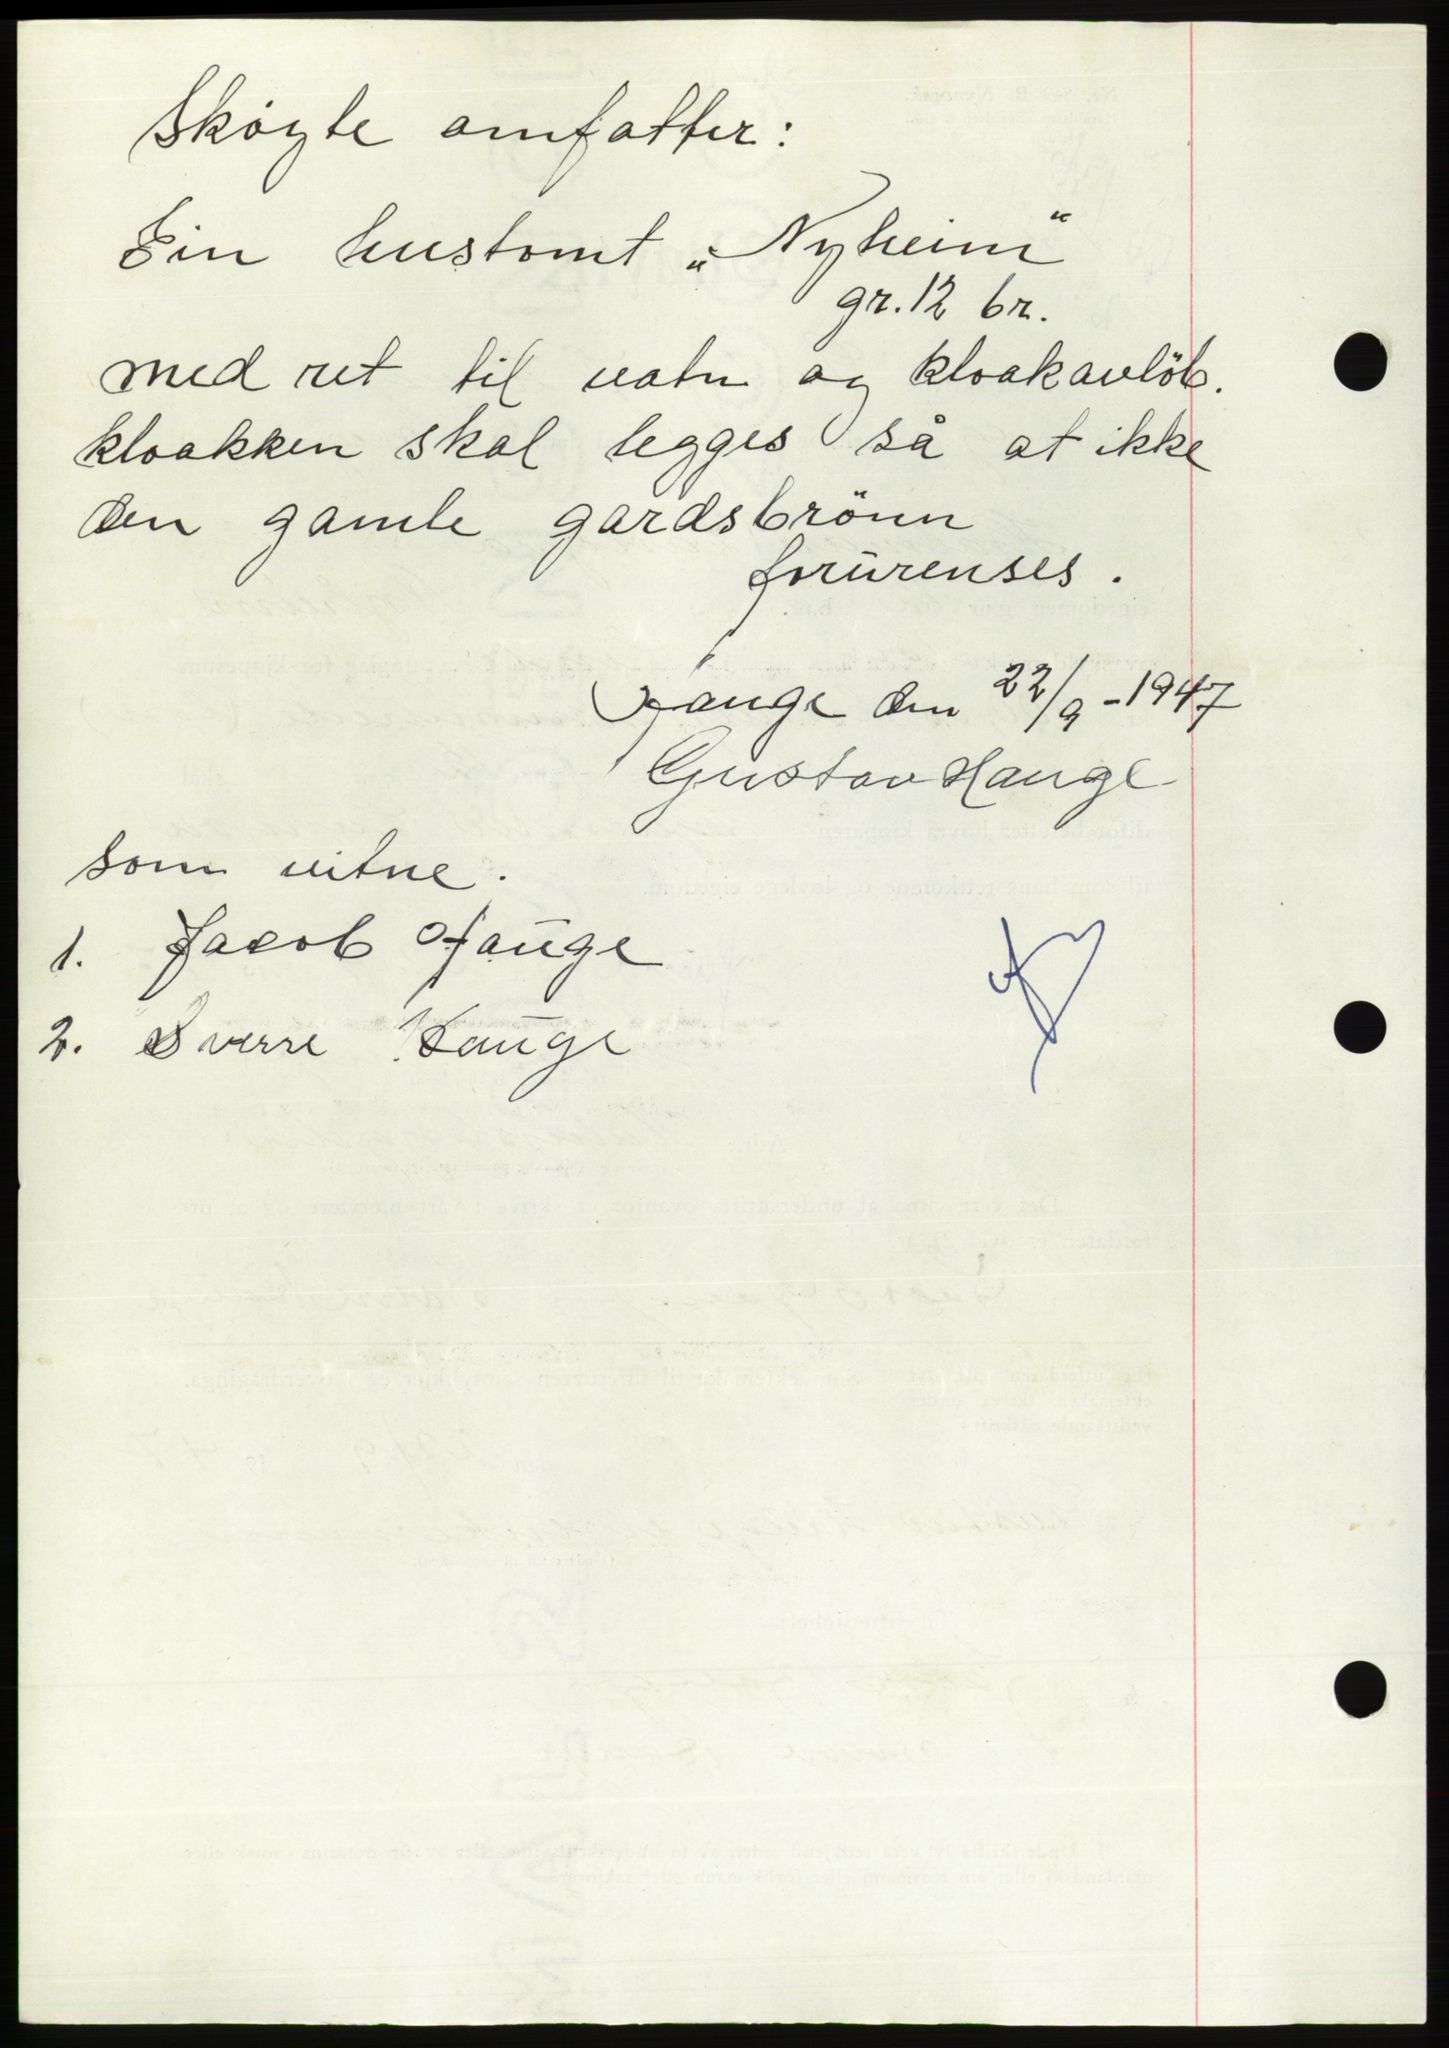 Skøyte omfatter:
Ein hustomt „Nyheim"
gr. 12 br.
med ret til vatn og kloakavlöb.
kloakken skal legges så at ikke
den gamle gardsbrönn
forurenses.
Hauge den 22/9 - 1947
Gustav Hauge
som vitne.
1. Jacob Hauge
2. Sverre Hauge